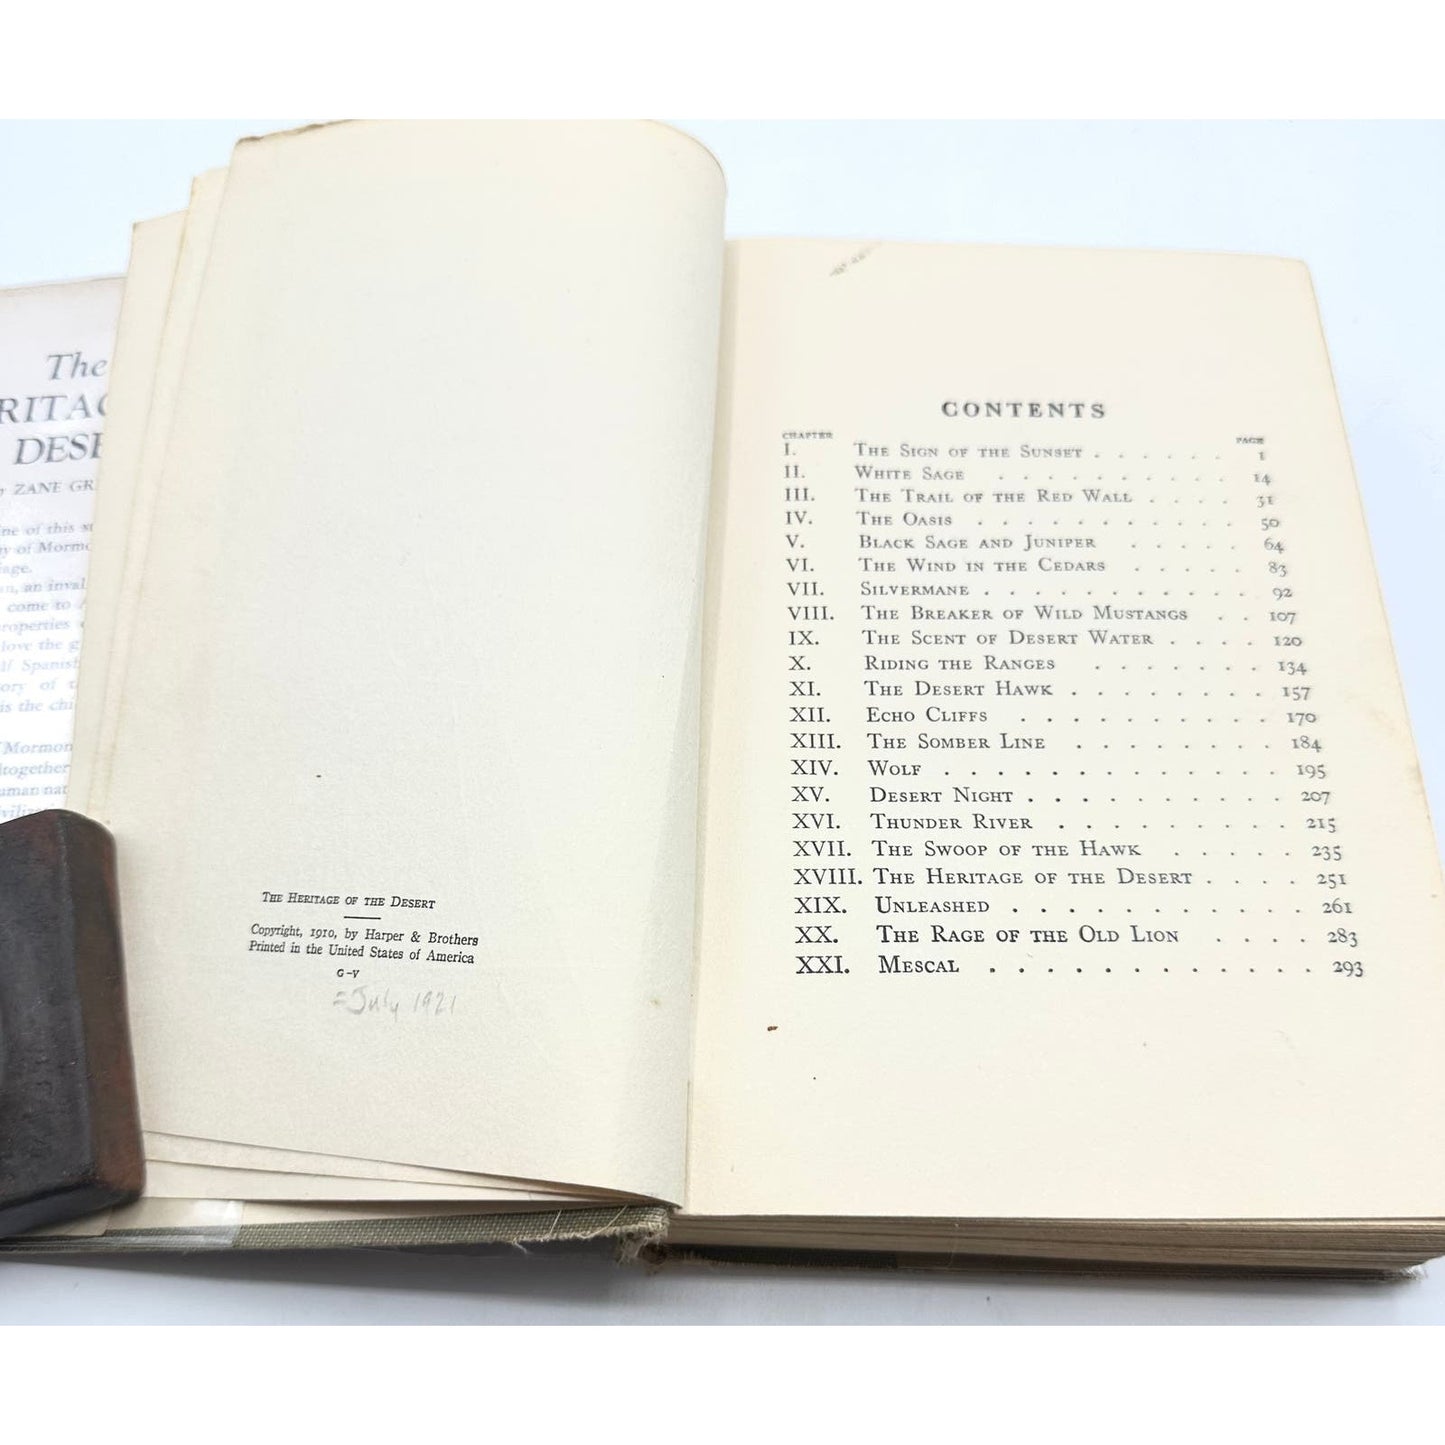 The
RITAG
DESE
y ZANE GR
ne of this s
y of Mormo
iage.
n, an inval
come to A
roperties
love the g
lf Spanish
ory of t
is the chi
Mormon
ltogether
uman nat
THE HERITAGE OF THE DESERT
Copyright, 1910, by Harper & Brothers
Printed in the United States of America
G-V
=July 1921
CONTENTS
CHAPTER PAGE
I. THE SIGN OF THE SUNSET . . . . . . 1
II. WHITE SAGE . . . . . . . . . . 14
III. THE TRAIL OF THE RED WALL . . . . 31
IV. THE OASIS . . . . . . . . . . . 50
V. BLACK SAGE AND JUNIPER . . . . . 64
VI. THE WIND IN THE CEDARS . . . . . 83
VII. SILVERMANE . . . . . . . . . . . 92
VIII. THE BREAKER OF WILD MUSTANGS . . 107
IX. THE SCENT OF DESERT WATER . . . . 120
X. RIDING THE RANGES . . . . . . . 134
XI. THE DESERT HAWK . . . . . . . . 157
XII. ECHO CLIFFS . . . . . . . . . . 170
XIII. THE SOMBER LINE . . . . . . . . 184
XIV. WOLF . . . . . . . . . . . . . 195
XV. DESERT NIGHT . . . . . . . . . . 207
XVI. THUNDER RIVER . . . . . . . . . 215
XVII. THE SWOOP OF THE HAWK . . . . . 235
XVIII. THE HERITAGE OF THE DESERT . . . . 251
XIX. UNLEASHED . . . . . . . . . . . 261
XX. THE RAGE OF THE OLD LION . . . . 283
XXI. MESCAL . . . . . . . . . . . . 293